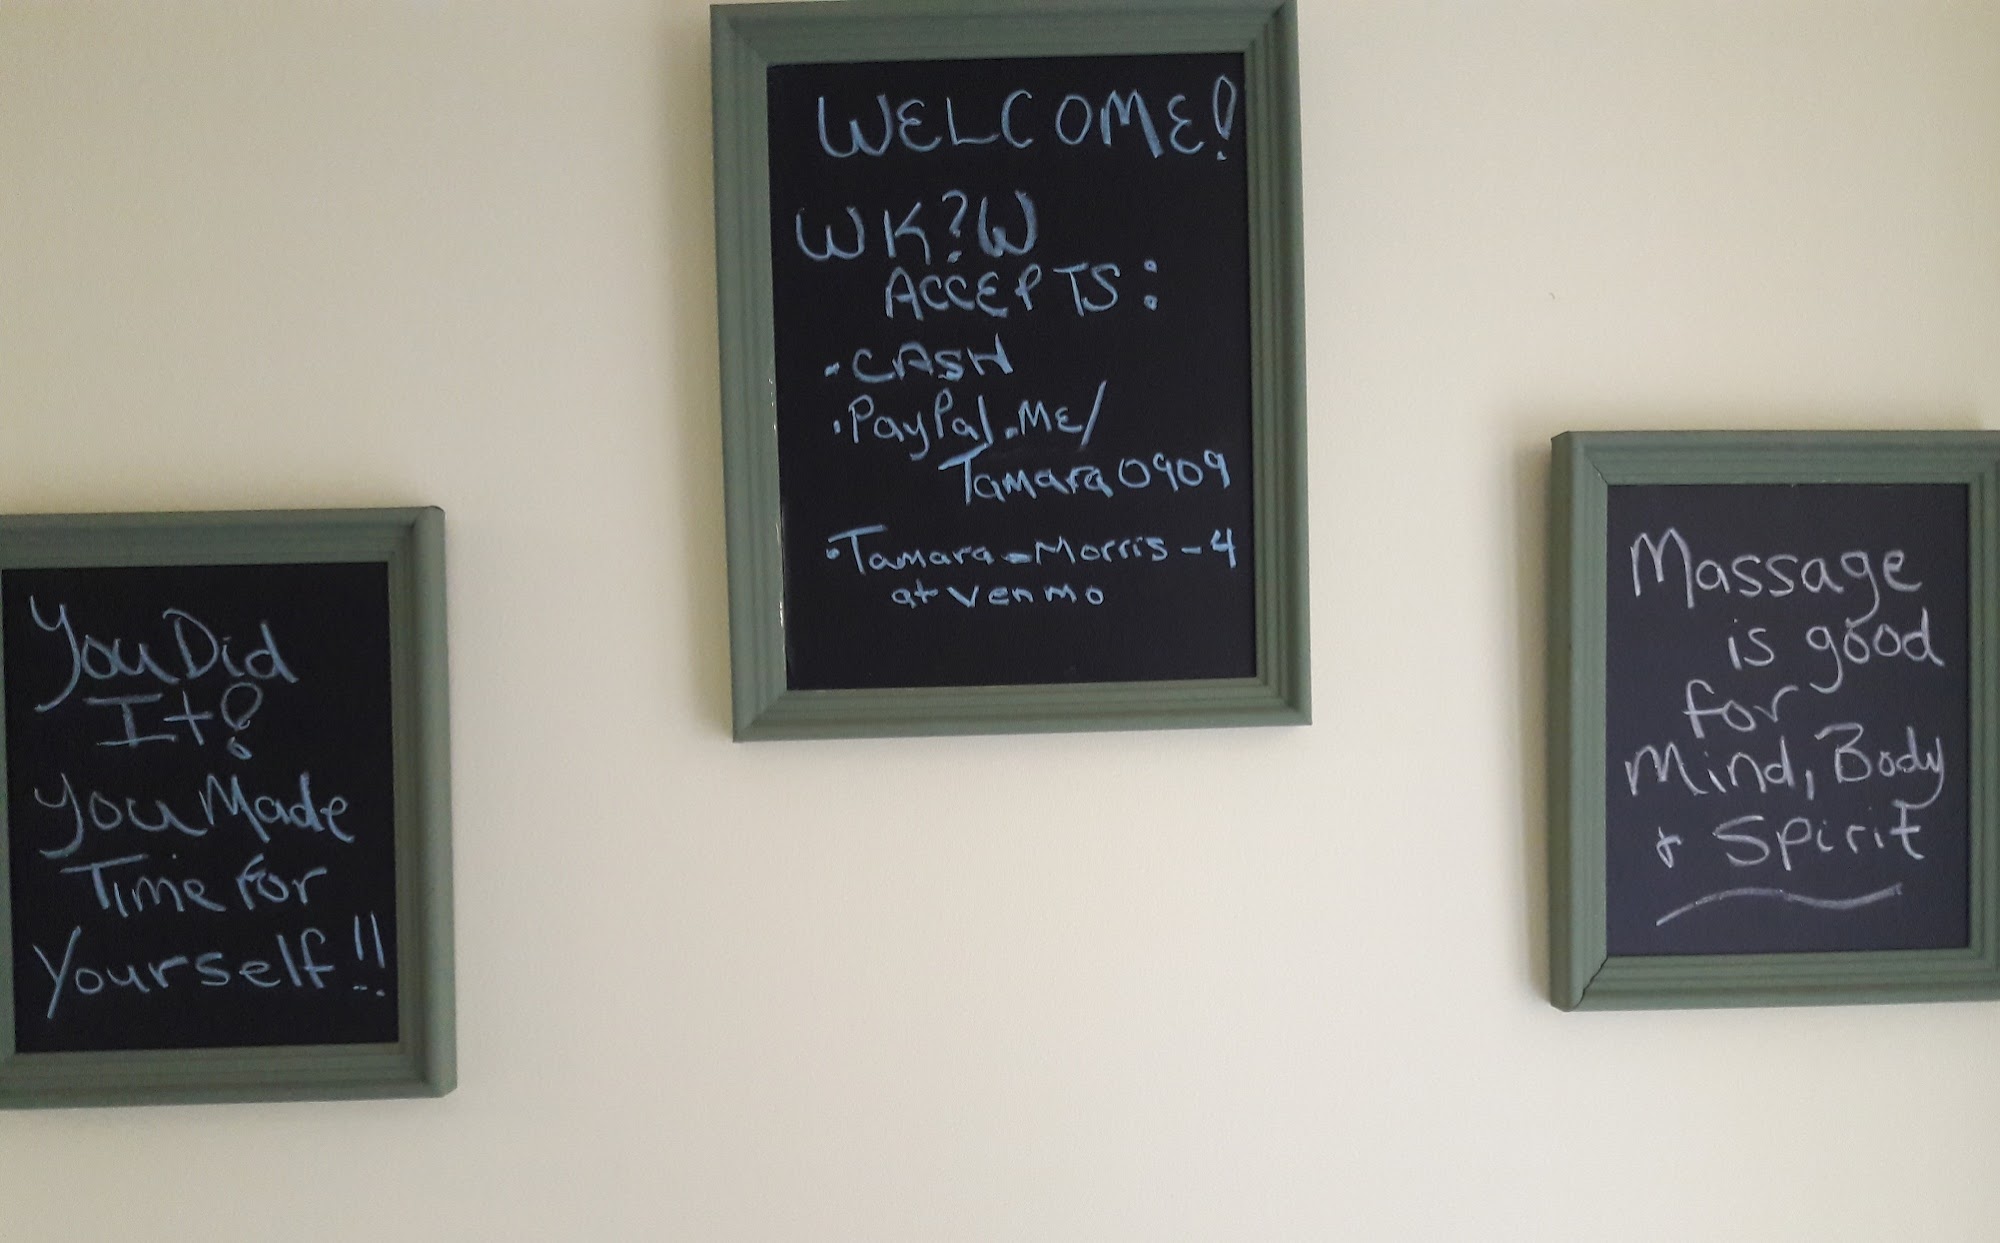 You Did
It!
You Made
Time For
Yourself!!
WELCOME!
WK?W
ACCEPTS:
• CASH
• PayPal.Me/
Tamara0909
• Tamara-Morris-4
at venmo
Massage
is good
for
Mind, Body
& Spirit